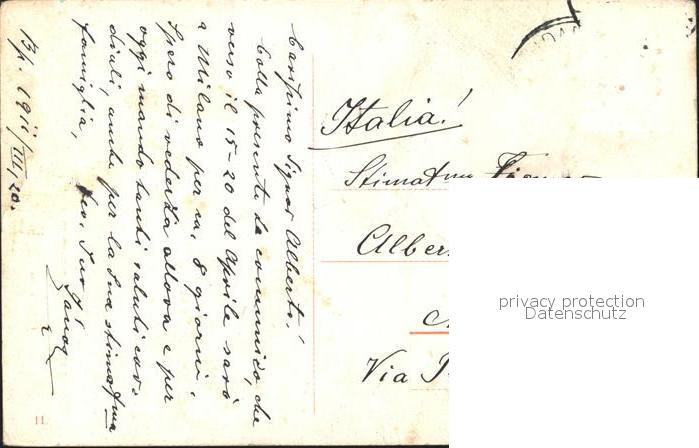 Bp. 1911/III, 20.
Carissimo Signor Alberto!
Colla presente Le comunico, che
verso il 15-20 del Aprile sarò
a Milano per ca. 8 giorni.
Spero di vederLa allora e per
oggi mando tanti saluti cor-
diali, anche per la Sua stimatma
famiglia,
Suo János
Italia!
Stimatmo Signor
Alber
Via
privacy protection
Datenschutz
11.